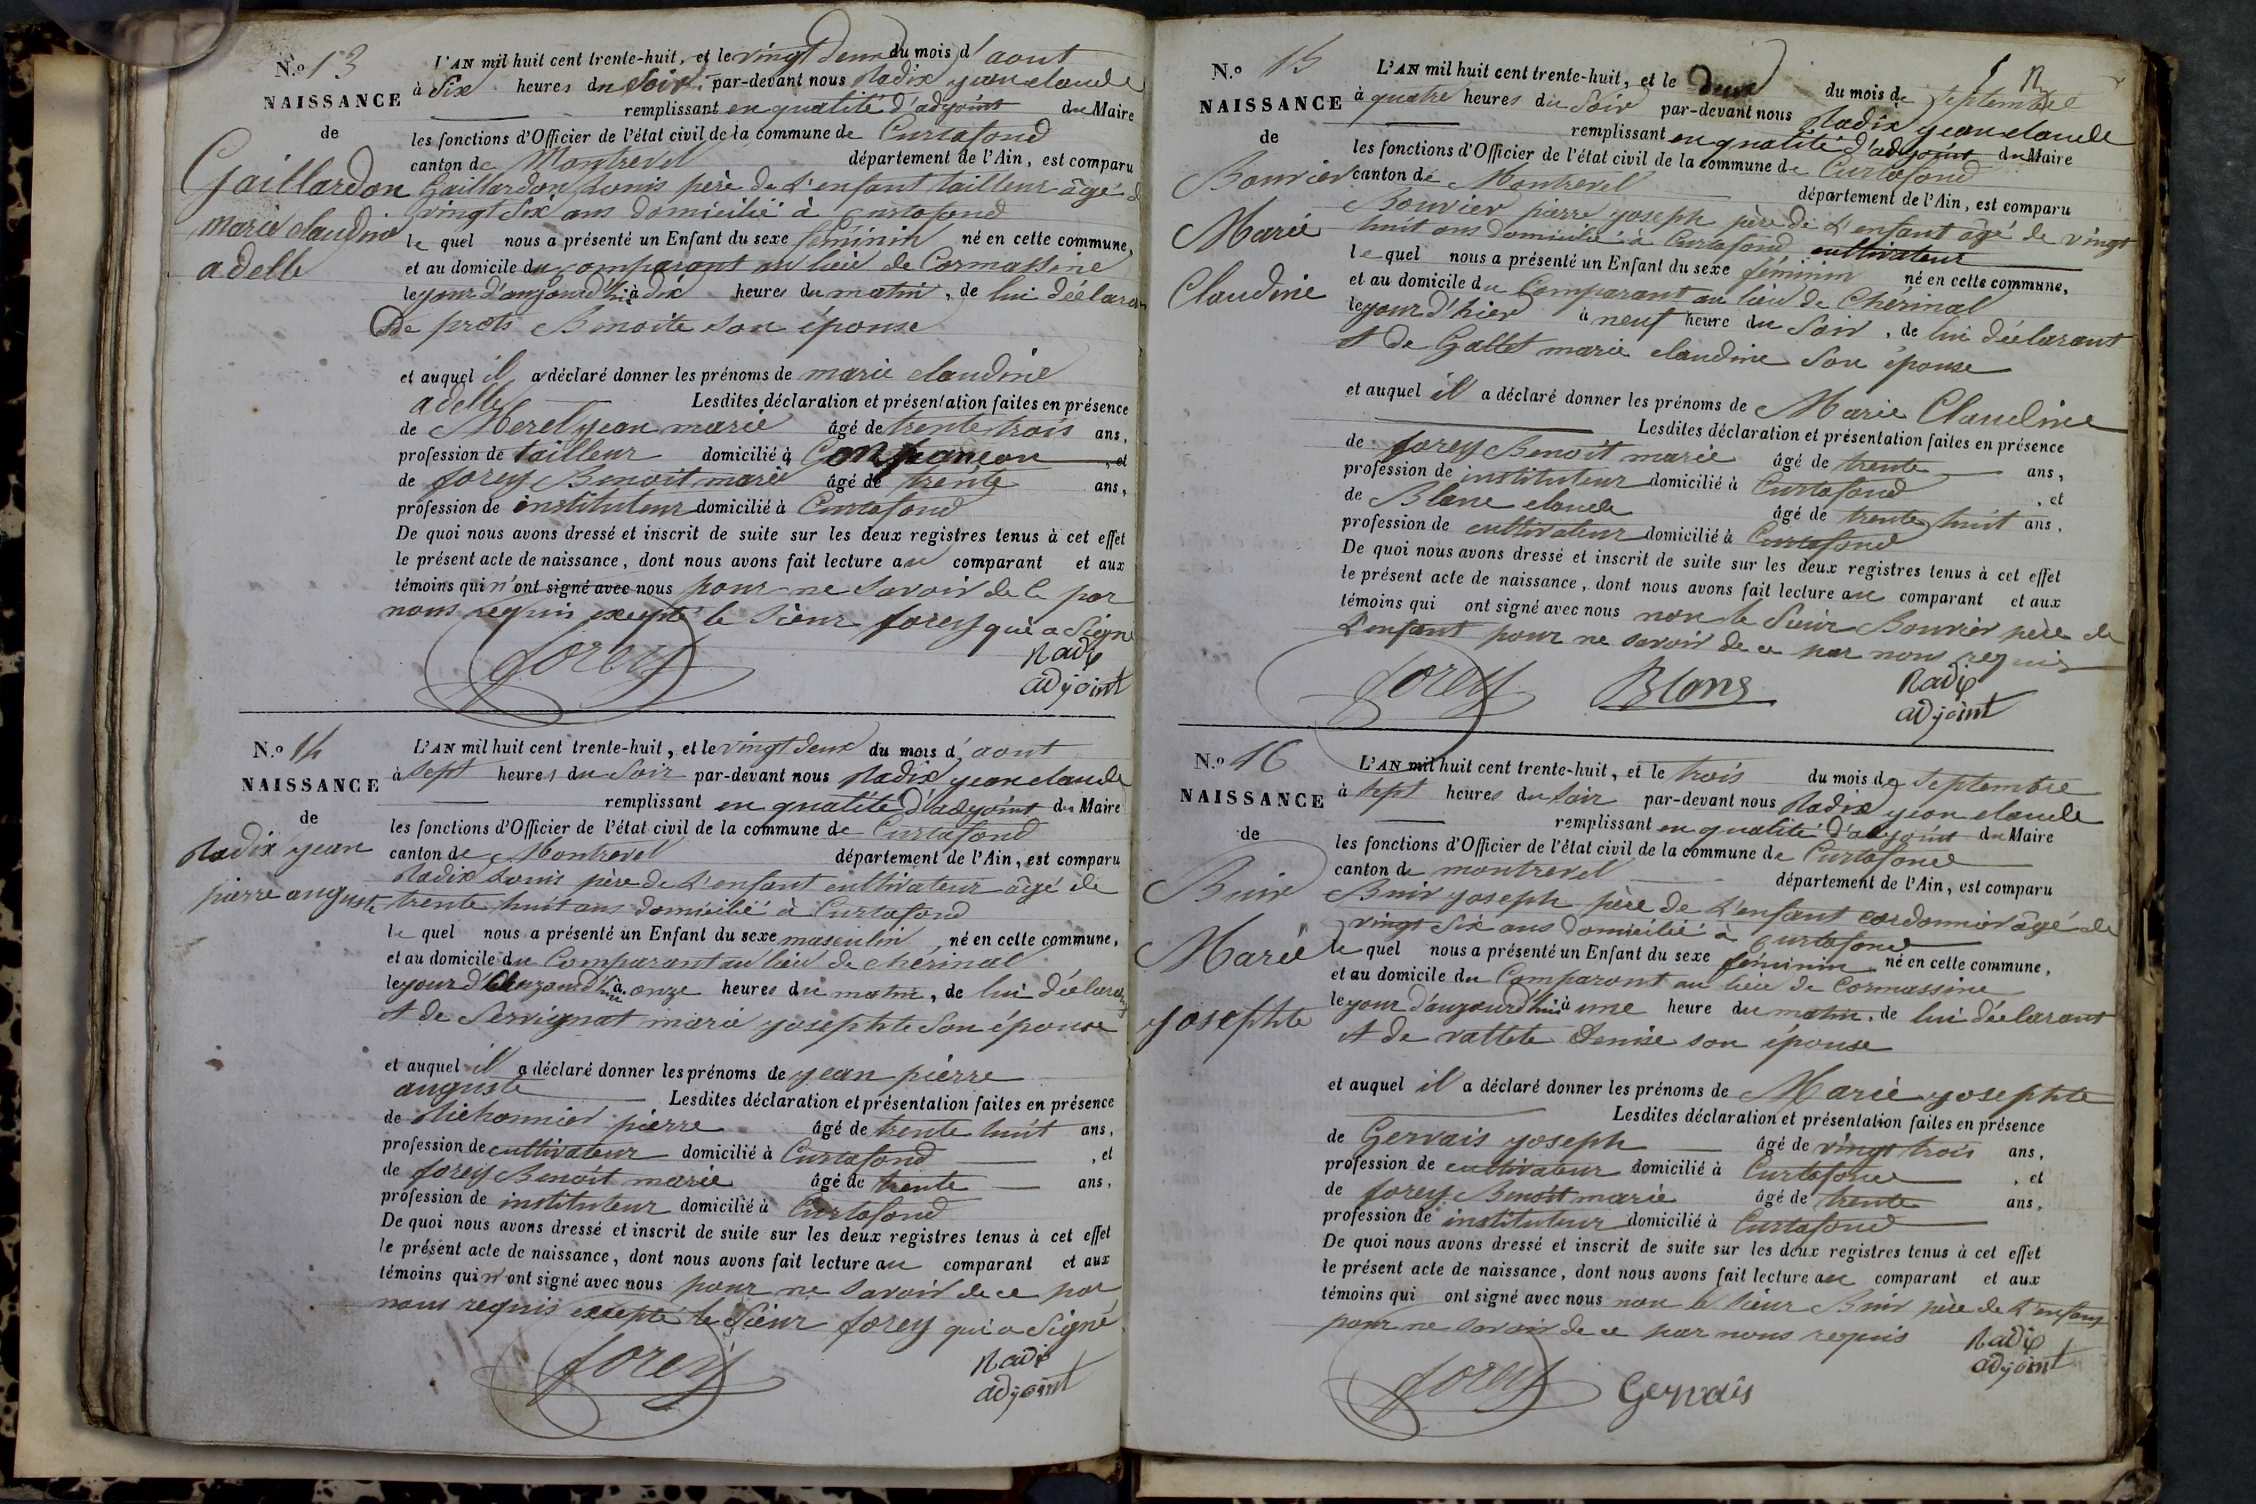 N.º 13
NAISSANCE
de
Gaillardon
marie claudine
adelle
L'AN mil huit cent trente-huit, et le vingt deux du mois d'aout
à Six heures du Soir, par-devant nous Radix jean claude
remplissant en qualité d'adjoint du Maire
les fonctions d'Officier de l'état civil de la commune de Curtafond
canton de Montrevel département de l'Ain, est comparu
Gaillardon Louis père de L'enfant tailleur âgé de
vingt Six ans domicilié à Curtafond
le quel nous a présenté un Enfant du sexe féminin né en cette commune,
et au domicile du comparant au lieu de Cormassine
le jour d'aujourd'hui à dix heures du matin, de lui déclarant
de prots Benoite son épouse
et auquel il a déclaré donner les prénoms de marie claudine
adelle Lesdites déclaration et présentation faites en présence
de Merel jean marie âgé de trente trois ans,
profession de tailleur domicilié à Confrançon, et
de forey Benoit marie âgé de trente ans,
profession de instituteur domicilié à Curtafond
De quoi nous avons dressé et inscrit de suite sur les deux registres tenus à cet effet
le présent acte de naissance, dont nous avons fait lecture au comparant et aux
témoins qui n'ont signé avec nous pour ne savoir de ce par
nous requis excepté le Sieur forey qui a Signé
forey
Radix
adjoint
N.º 14
NAISSANCE
de
Radix jean
pierre auguste
L'AN mil huit cent trente-huit, et le vingt deux du mois d'aout
à Sept heures du Soir par-devant nous Radix jean claude
remplissant en qualité d'adjoint du Maire
les fonctions d'Officier de l'état civil de la commune de Curtafond
canton de Montrevel département de l'Ain, est comparu
Radix Louis père de L'enfant cultivateur âgé de
trente huit ans domicilié à Curtafond
le quel nous a présenté un Enfant du sexe masculin, né en cette commune,
et au domicile du Comparant au lieu de cherinal
le jour d'aujourd'hui à onze heures du matin, de lui déclarant
et de Servignat marie josephte Son épouse
et auquel il a déclaré donner les prénoms de jean pierre
auguste Lesdites déclaration et présentation faites en présence
de Michonnier pierre âgé de trente huit ans,
profession de cultivateur domicilié à Curtafond, et
de forey Benoit marie âgé de trente ans,
profession de instituteur domicilié à Curtafond
De quoi nous avons dressé et inscrit de suite sur les deux registres tenus à cet effet
le présent acte de naissance, dont nous avons fait lecture au comparant et aux
témoins qui n'ont signé avec nous pour ne savoir de ce par
nous requis excepté le Sieur forey qui a Signé
forey
Radix
adjoint
N.º 15
NAISSANCE
de
Bouvier
Marie
Claudine
L'AN mil huit cent trente-huit, et le deux du mois de Septembre
à quatre heures du Soir par-devant nous Radix jean claude
remplissant en qualité d'adjoint du Maire
les fonctions d'Officier de l'état civil de la commune de Curtafond
canton de Montrevel département de l'Ain, est comparu
Bouvier pierre joseph père de L'enfant âgé de vingt
huit ans domicilié à Curtafond cultivateur
le quel nous a présenté un Enfant du sexe féminin né en cette commune,
et au domicile du Comparant au lieu de Chérinal
le jour d'hier à neuf heure du Soir, de lui déclarant
et de Gallet marie claudine Son épouse
et auquel il a déclaré donner les prénoms de Marie Claudine
Lesdites déclaration et présentation faites en présence
de forey Benoit marie âgé de trente ans,
profession de instituteur domicilié à Curtafond, et
de Blanc claude âgé de trente huit ans,
profession de cultivateur domicilié à Curtafond
De quoi nous avons dressé et inscrit de suite sur les deux registres tenus à cet effet
le présent acte de naissance, dont nous avons fait lecture au comparant et aux
témoins qui ont signé avec nous non le Sieur Bouvier père de
L'enfant pour ne savoir de ce par nous requis
forey Blanc
Radix
adjoint
N.º 16
NAISSANCE
de
Buir
Marie
josephte
L'AN mil huit cent trente-huit, et le trois du mois de Septembre
à Sept heures du Soir par-devant nous Radix jean claude
remplissant en qualité d'adjoint du Maire
les fonctions d'Officier de l'état civil de la commune de Curtafond
canton de montrevel département de l'Ain, est comparu
Buir joseph père de L'enfant cordonnier âgé de
vingt Six ans domicilié à Curtafond
le quel nous a présenté un Enfant du sexe féminin né en cette commune,
et au domicile du Comparant au lieu de Cormassine
le jour d'aujourd'hui à une heure du matin, de lui déclarant
et de vattete Denise son épouse
et auquel il a déclaré donner les prénoms de Marie josephte
Lesdites déclaration et présentation faites en présence
de Gervais joseph âgé de vingt trois ans,
profession de cultivateur domicilié à Curtafond, et
de forey Benoit marie âgé de trente ans,
profession de instituteur domicilié à Curtafond
De quoi nous avons dressé et inscrit de suite sur les deux registres tenus à cet effet
le présent acte de naissance, dont nous avons fait lecture au comparant et aux
témoins qui ont signé avec nous non le Sieur Buir père de L'enfant
pour ne savoir de ce par nous requis
Radix
adjoint
forey Gervais